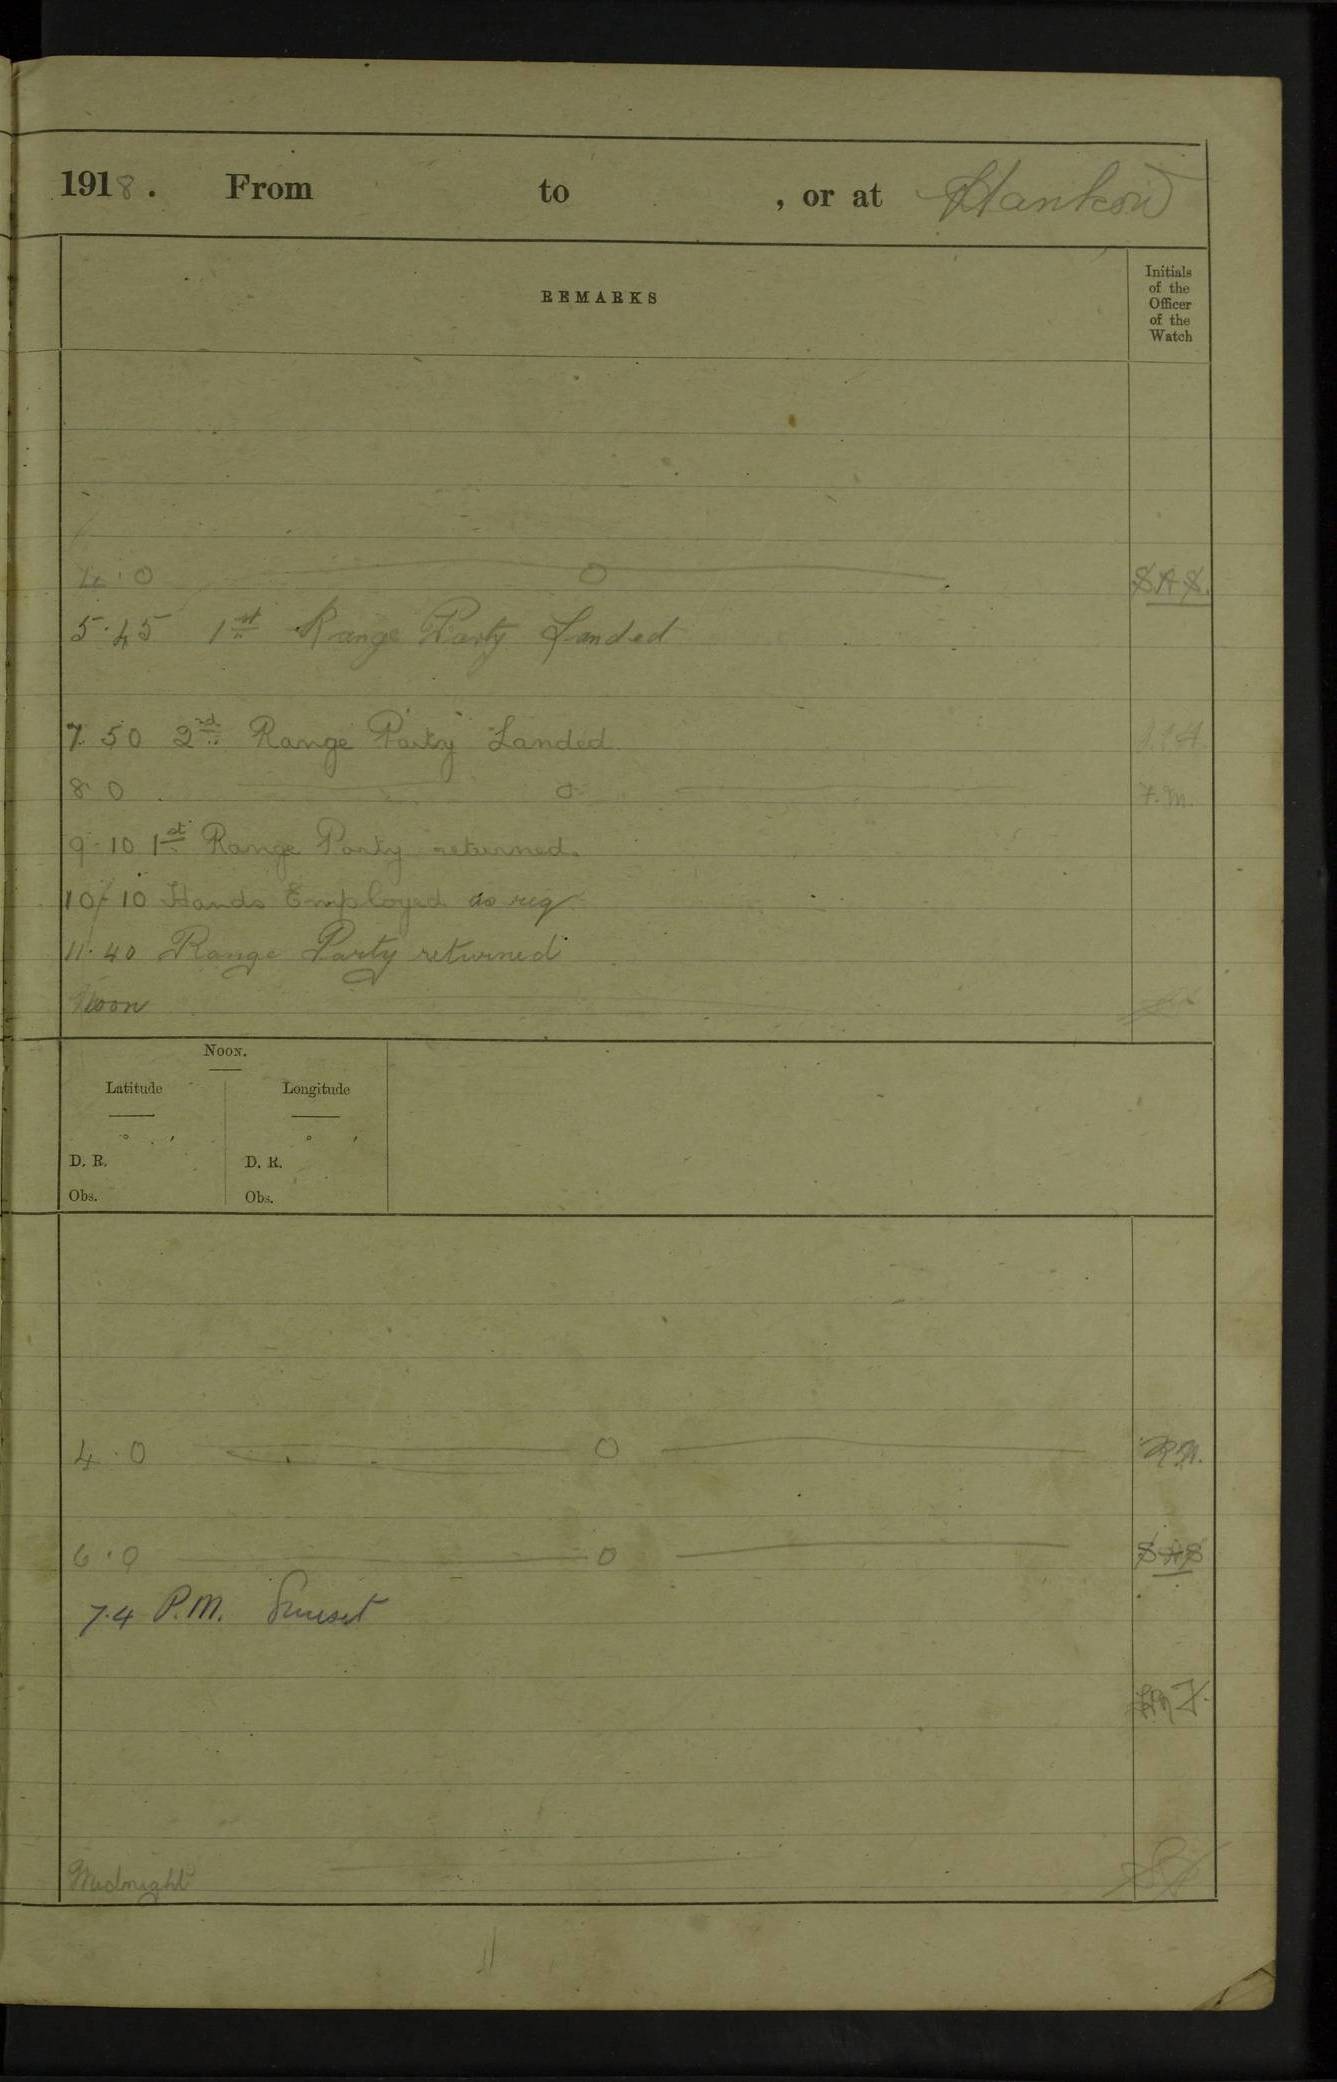 1918. From to , or at Hankow
REMARKS
Initials
of the
Officer
of the
Watch
4.0 0 SAS.
5.45 1st Range Party Landed
7.50 2nd Range Party Landed
8 0 0 F.M.
9.10 1st Range Party returned.
10/10 Hands Employed as req
11.40 Range Party returned
Noon
NOON.
Latitude Longitude
° ' ° '
D. R. D. R.
Obs. Obs.
4.0 0
6.0 0 SAS
7.4 P.M. Sunset
Midnight